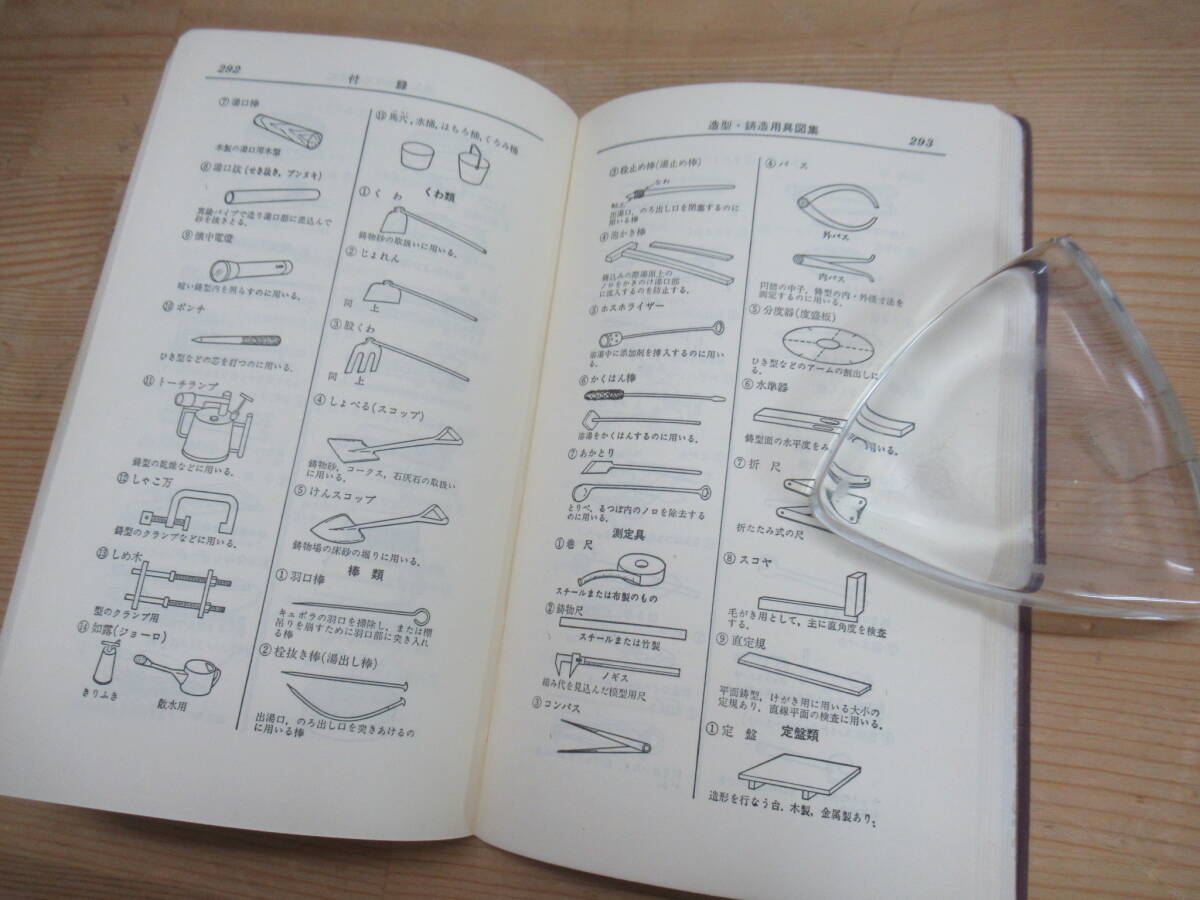 292
付 録
⑦湯口棒
木製の湯口用木型
⑧湯口抜(せき抜き, ブンヌキ)
真鍮パイプで造り湯口部に差込んで
砂を抜きとる.
⑨懐中電燈
暗い鋳型内を照らすのに用いる.
⑩ポンチ
ひき型などの芯を打つのに用いる.
⑪トーチランプ
鋳型の乾燥などに用いる.
⑫しゃこ万
鋳型のクランプなどに用いる.
⑬しめ木
型のクランプ用
⑭如露(ジョーロ)
きりふき
散水用
⑮馬穴, 水桶, はちろ桶, くろみ桶
くわ類
①くわ
鋳物砂の取扱いに用いる.
②じょれん
同上
③股くわ
同上
④しょべる(スコップ)
鋳物砂, コークス, 石灰石の取扱い
に用いる.
⑤けんスコップ
鋳物場の床砂の堀りに用いる.
棒類
①羽口棒
キュポラの羽口を掃除し, または棚
吊りを崩すために羽口部に突き入れ
る棒
②栓抜き棒(湯出し棒)
出湯口, のろ出し口を突きあけるの
に用いる棒
造型・鋳造用具図集
293
③栓止め棒(湯止め棒)
なわ
粘土
出湯口, のろ出し口を閉塞するのに
用いる棒
④泡かき棒
鋳込みの際湯面上の
ノロをかきのけ湯口部
に流入するのを防止する.
⑤ホスホライザー
溶湯中に添加剤を挿入するのに用い
る.
⑥かくはん棒
溶湯をかくはんするのに用いる.
⑦あかとり
とりべ, るつぼ内のノロを除去する
のに用いる.
測定具
①巻尺
スチールまたは布製のもの
②鋳物尺
スチールまたは竹製
ノギス
縮み代を見込んだ模型用尺
③コンパス
④パス
外パス
内パス
円筒の中子, 鋳型の内・外径寸法を
測定するのに用いる.
⑤分度器(度盛板)
ひき型などのアームの割出しに
る.
⑥水準器
鋳型面の水平度をみ 用いる.
⑦折尺
折たたみ式の尺
⑧スコヤ
毛がき用として, 主に直角度を検査
する.
⑨直定規
平面鋳型, けがき用に用いる大小の
定規あり, 直線平面の検査に用いる.
定盤類
①定盤
造形を行なう台. 木製, 金属製あり;